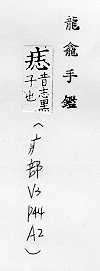 龍龕手鑑
痣音志黑
子也
(疒部V3
P44
A2)